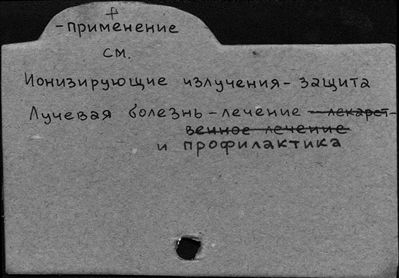 +
-применение
см.
Ионизирующие излучения - защита
Лучевая болезнь - лечение - лекарст-
венное лечение
и профилактика